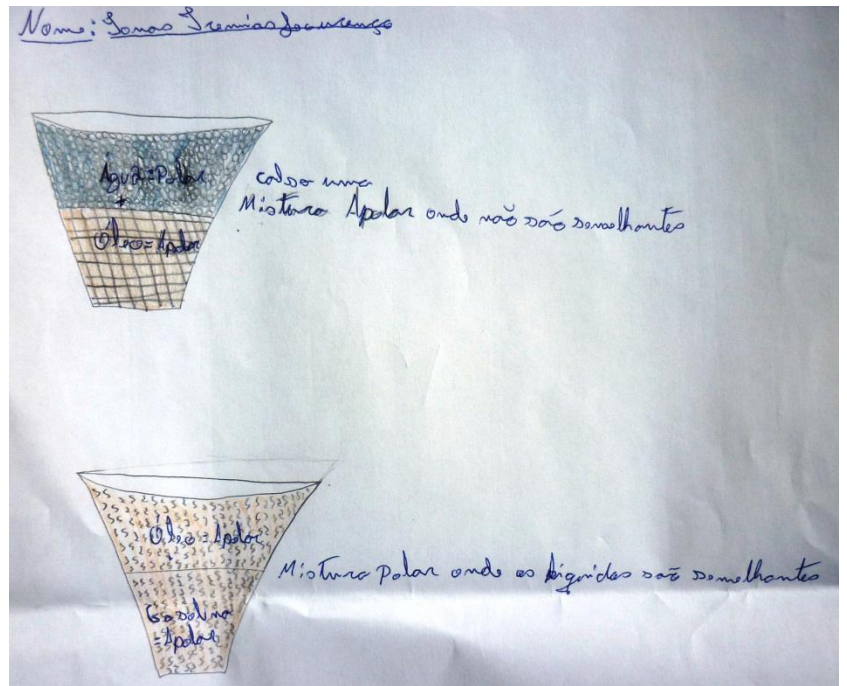 Nome: Jonas Jremias Lourenço
Água=Polar
+
Óleo=Apolar
uma
Mistura Apolar onde não são semelhantes
Óleo=Apolar
Gasolina
=Apolar
Mistura Polar onde os líquidos são semelhantes